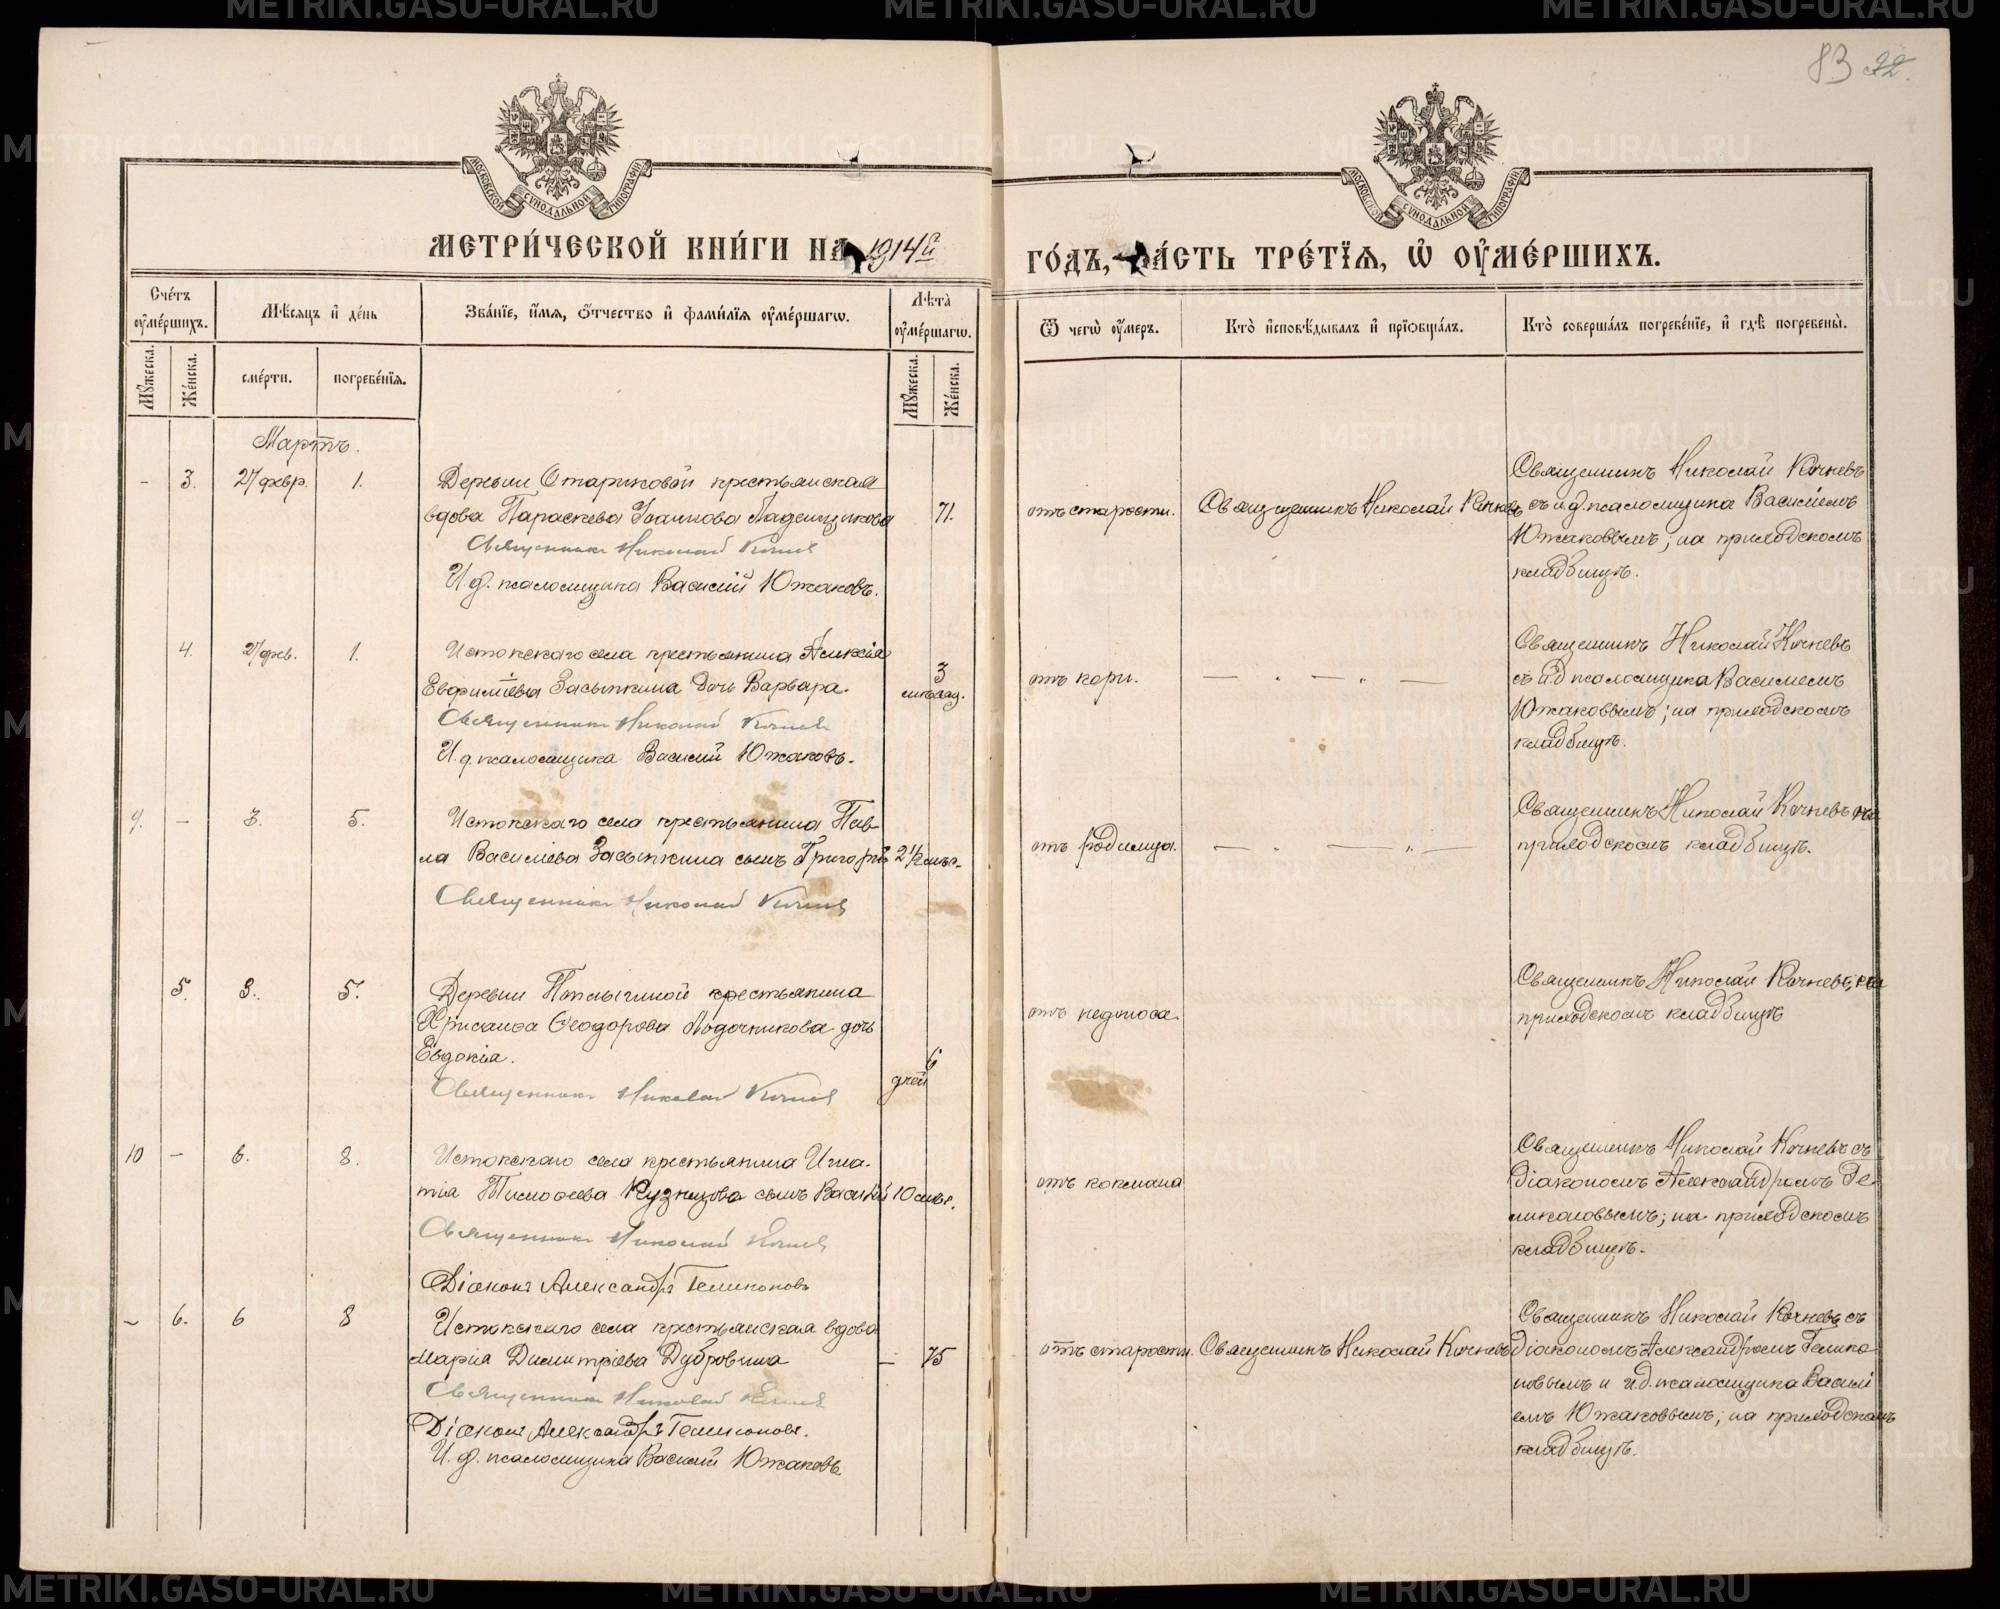 83 22.
МОСКОВСКОЙ СУНОДАЛЬНОЙ ТИПОГРАФІИ
МОСКОВСКОЙ СУНОДАЛЬНОЙ ТИПОГРАФІИ
МЕТРИ́ЧЕСКОЙ КНИ́ГИ НА 1914й
ГО́ДЪ, ЧА́СТЬ ТРЕ́ТІЯ, Ѽ ОУ҆МЕ́РШИХЪ.
Сче́тъ оу҆ме́ршихъ.
Мꙋ́жеска.
Же́нска.
Мѣ́сяцъ и҆ де́нь
сме́рти.
погребе́нїѧ.
Зва́нїе, и҆́мѧ, ѻ҆́тчество и҆ фами́лїѧ оу҆ме́ршагѡ.
Лѣ́та̀ оу҆ме́ршагѡ.
Мꙋ́жеска.
Же́нска.
Ѿ чегѡ̀ оу҆́меръ.
Кто̀ и҆сповѣ́дывалъ и҆ прїѡбща́лъ.
Кто̀ соверша́лъ погребе́нїе, и҆ гдѣ̀ погребены̀.
Мартъ.
- 3. 27 февр. 1.
Деревни Стариковой крестьянская
вдова Параскева Іоаннова Ладейщикова
71.
Священникъ Николай Кочневъ
И. д. псаломщика Василій Южаковъ.
отъ старости.
Священникъ Николай Кочневъ
Священникъ Николай Кочневъ
съ и. д. псаломщика Василіемъ
Южаковымъ; на приходскомъ
кладбищѣ.
4. 27 фев. 1.
Истокскаго села крестьянина Алексія
Евфиміева Засыпкина дочь Варвара.
3
Священникъ Николай Кочневъ
И. д. псаломщика Василій Южаковъ.
отъ кори.
— " — " —
Священникъ Николай Кочневъ
съ и. д псаломщика Василіемъ
Южаковымъ; на приходскомъ
кладбищѣ.
9. - 3. 5.
Истокскаго села крестьянина Пав-
ла Василіева Засыпкина сынъ Григорій
2 1/2 мѣс.
Священникъ Николай Кочневъ
отъ родимца.
— " — " —
Священникъ Николай Кочневъ на
приходскомъ кладбищѣ.
5. 3. 5.
Деревни
крестьянина
Хрисанѳа Ѳеодорова Лодочникова дочь
Евдокія.
6
дней
Священникъ Николай Кочневъ
отъ недоноса.
Священникъ Николай Кочневъ; на
приходскомъ кладбищѣ
10 - 6. 8.
Истокскаго села крестьянина Игна-
тія Тимоѳеева Кузнецова сынъ Василій
10 мѣс.
Священникъ Николай Кочневъ
Діаконъ Александръ Геликоновъ
отъ коклюша
Священникъ Николай Кочневъ съ
діакономъ Александромъ Ге-
ликоновымъ; на приходскомъ
кладбищѣ.
- 6. 6 8
Истокскаго села крестьянская вдова
Марія Димитріева Дубровина
- 75
Священникъ Николай Кочневъ
Діаконъ Александръ Геликоновъ.
И. д. псаломщика Василій Южаковъ.
отъ старости.
Священникъ Николай Кочневъ
Священникъ Николай Кочневъ съ
діакономъ Александромъ Гелико-
новымъ и и. д. псаломщика Василі
емъ Южаковымъ; на приходскомъ
кладбищѣ.
METRIKI.GASO-URAL.RU